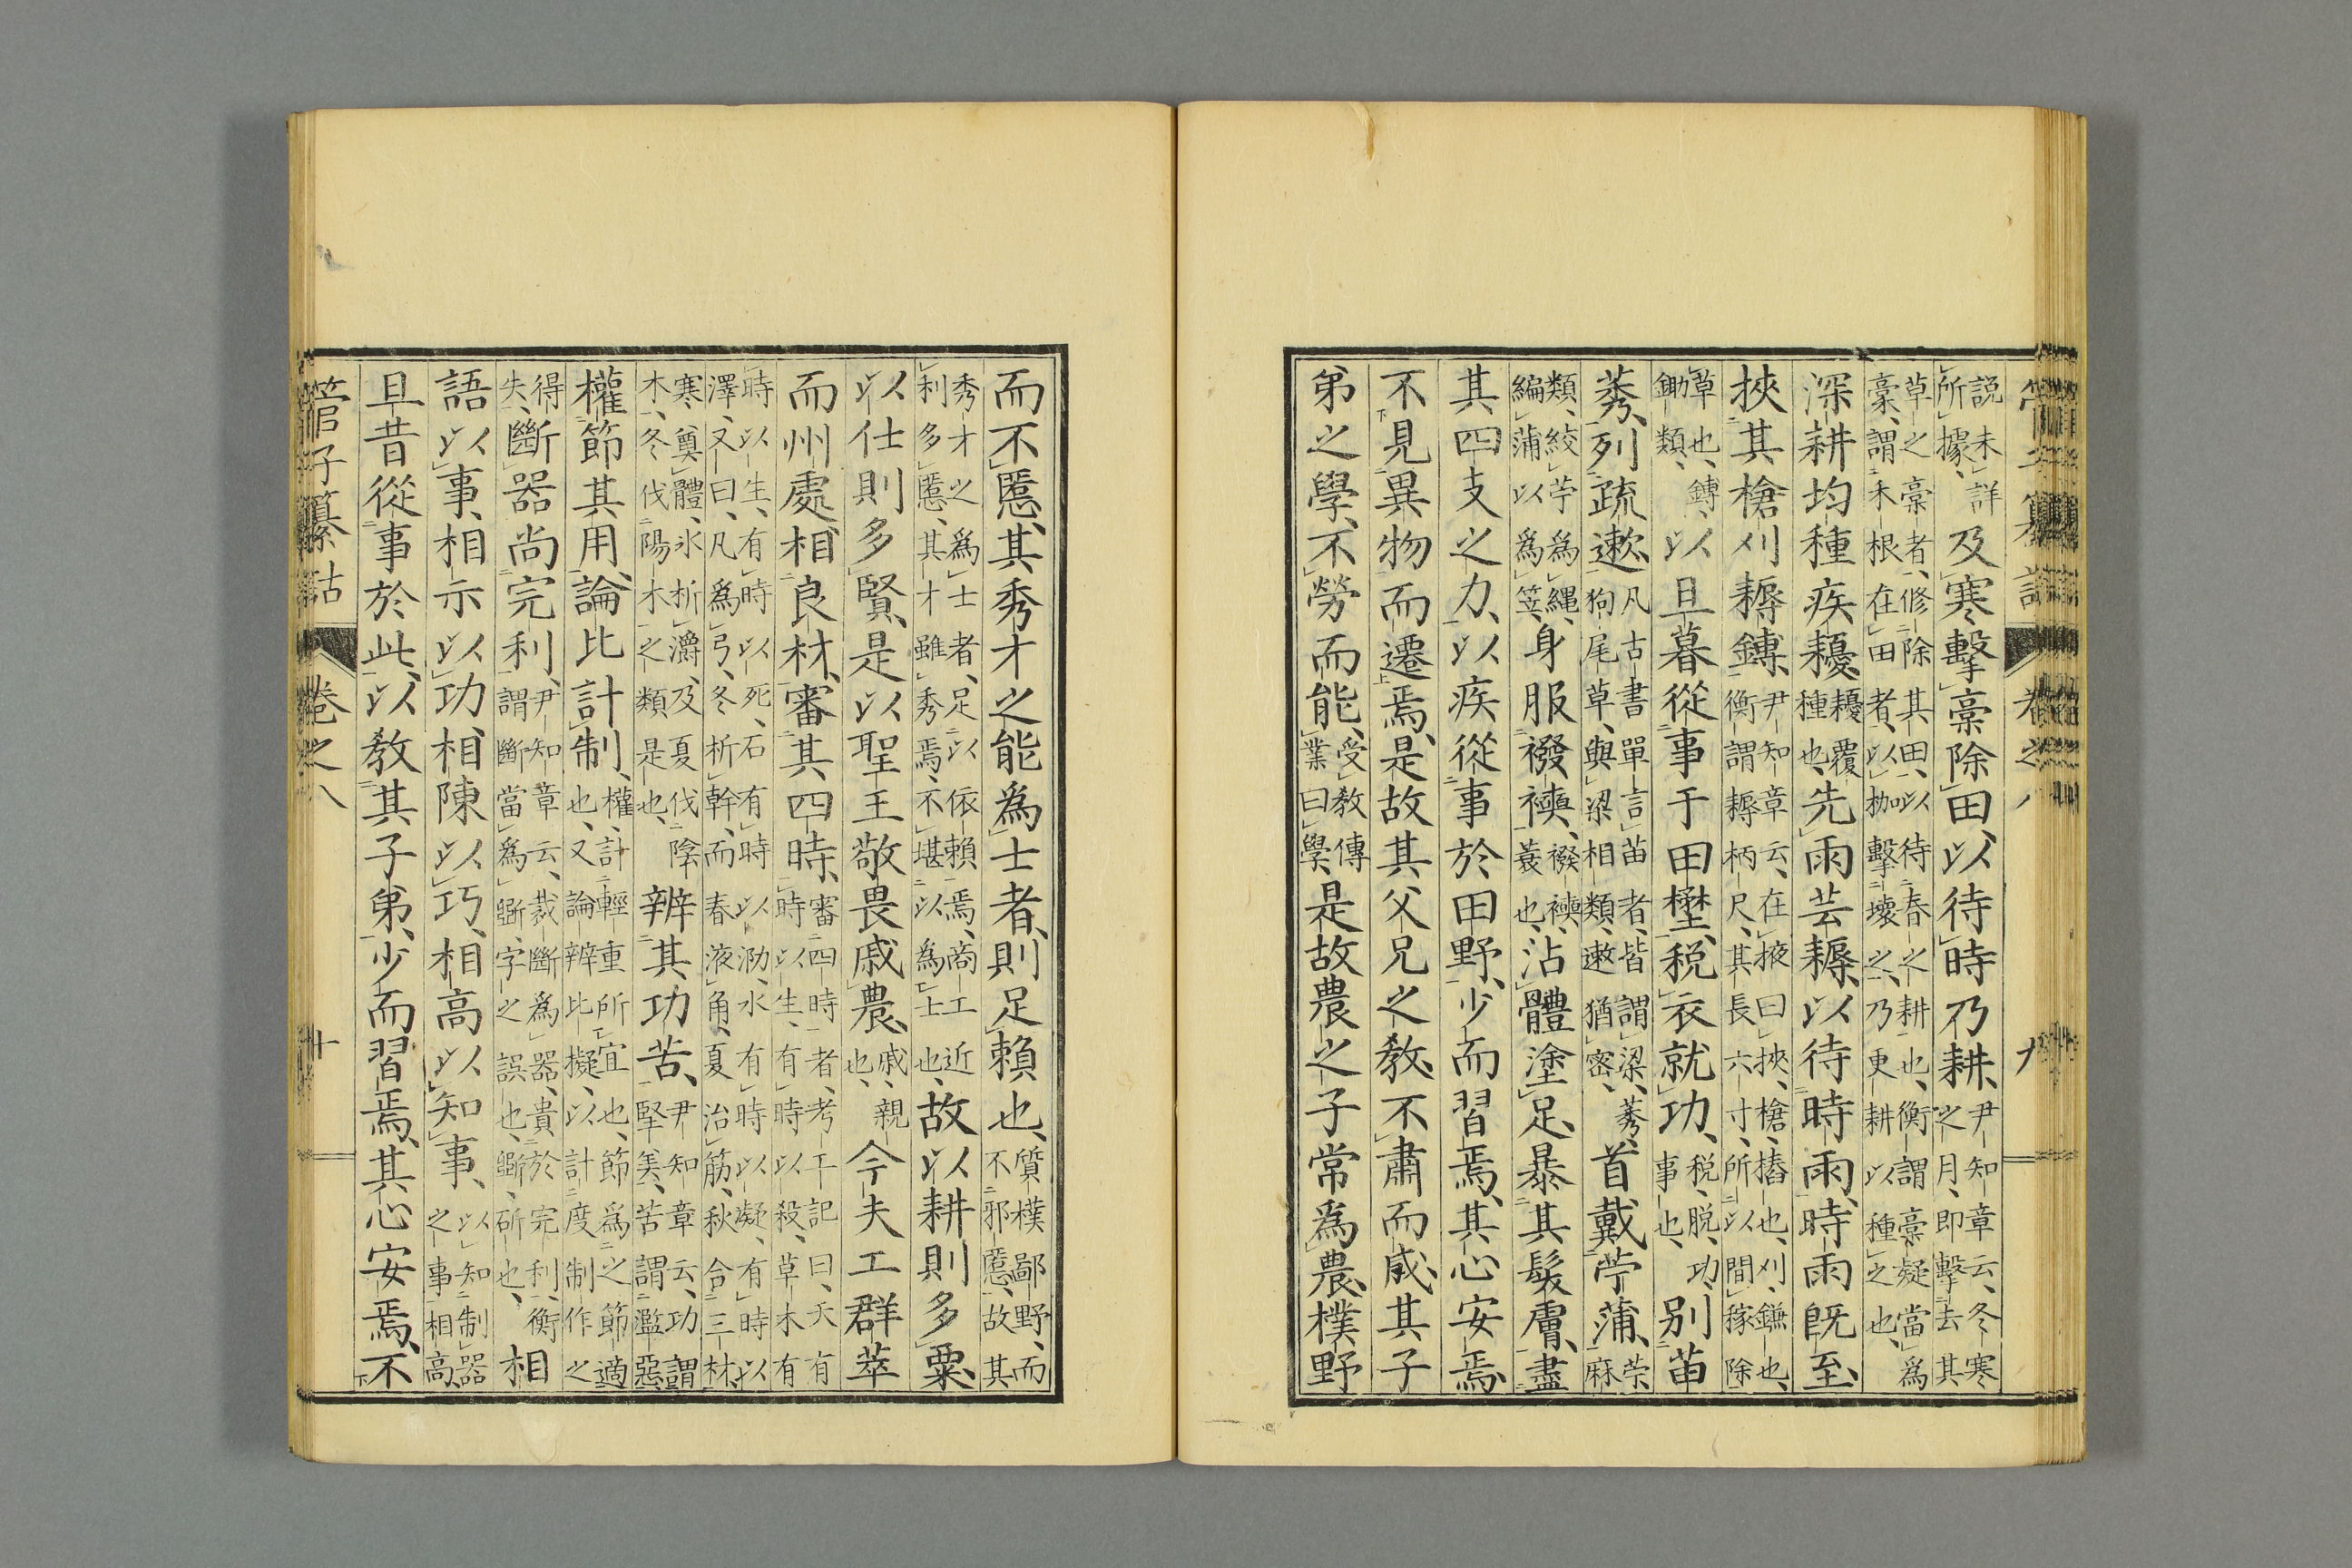 説未詳所據、及寒擊槀除田、以待時乃耕、尹知章云、冬寒之月、即擊去其
草之槀者、修除其田、以待春之耕也、衡謂槀疑當爲豪、謂禾根在田者、以枷擊壞之、乃更耕以種之也、
深耕均種疾耰、耰覆種也、先雨芸耨、以待時雨、時雨既至、
挾其槍刈耨鎛、尹知章云、在掖曰挾、槍、樁也、刈、鎌也、衡謂耨柄尺、其長六寸、所以間稼除
草也、鎛、鋤類、以旦暮從事于田壄、税衣就功、税、脱、功、事也、别苗
莠、列疏遬、凡古書單言苗者、皆謂粱、莠、狗尾草、與粱相類、遬猶密、首戴苧蒲、苧麻
類、絞苧爲縄、編蒲以爲笠、身服襏襫、襏襫、蓑也、沾體塗足、暴其髮膚、盡
其四支之力、以疾從事於田野、少而習焉、其心安焉、
不見異物而遷焉、是故其父兄之教、不肅而成、其子
弟之學、不勞而能、受教傳業曰學、是故農之子常爲農、樸野
管子纂詁 卷之八 九
而不慝、其秀才之能爲士者、則足賴也、質樸鄙野、而不邪慝、故其
秀才之爲士者、足以依賴焉、商工近利多慝、其才雖秀焉、不堪以爲士也、故以耕則多粟、
以仕則多賢、是以聖王敬畏戚農、戚、親也、今夫工群萃
而州處、相良材、審其四時、審四時者、考工記曰、天有時以生、有時以殺、草木有
時以生、有時以死、石有時以泐、水有時以凝、有時以澤、又曰、凡爲弓、冬析幹、而春液角、夏治筋、秋合三材、
寒奠體、冰析灂、及夏伐陰木、冬伐陽木之類是也、辨其功苦、尹知章云、功謂堅美、苦謂濫惡、
權節其用、論比計制、權、計輕重所宜也、節爲之節適也、又論辨比擬、以計度制作之
得失、斷器尚完利、尹知章云、裁斷爲器、貴於完利、衡謂斷當爲斲、字之誤也、斲、斫也、相
語以事、相示以功、相陳以巧、相高以知事、以知制器之事相高、
旦昔從事於此、以教其子弟、少而習焉、其心安焉、不
管子纂詁 卷之八 十